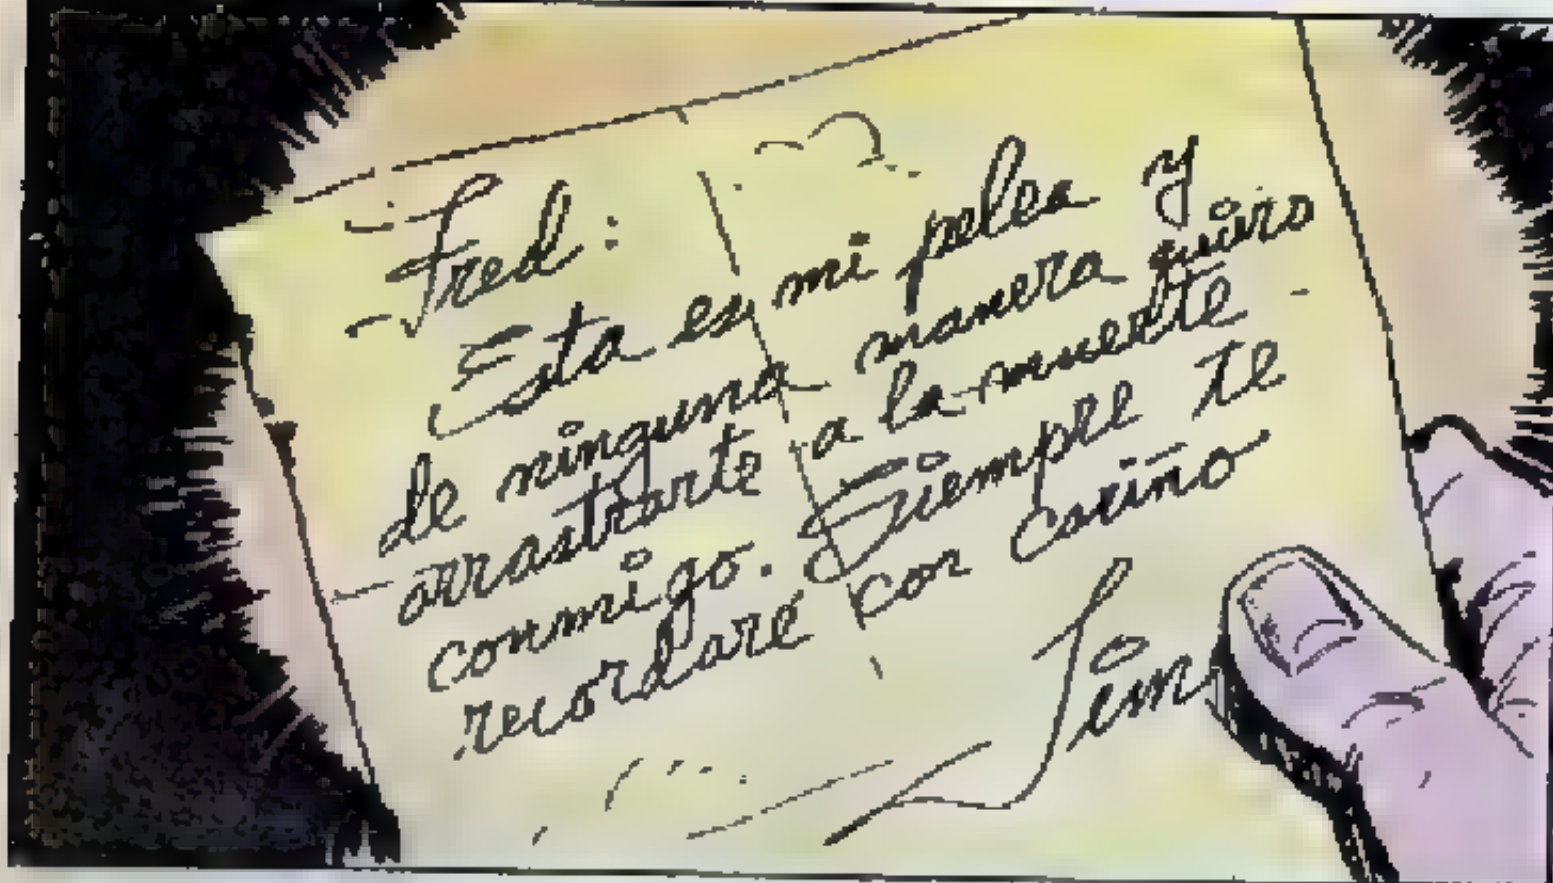 Fred:
Esta es mi pelea y
de ninguna manera quiero
arrastrarte a la muerte
conmigo. Siempre te
recordaré con cariño